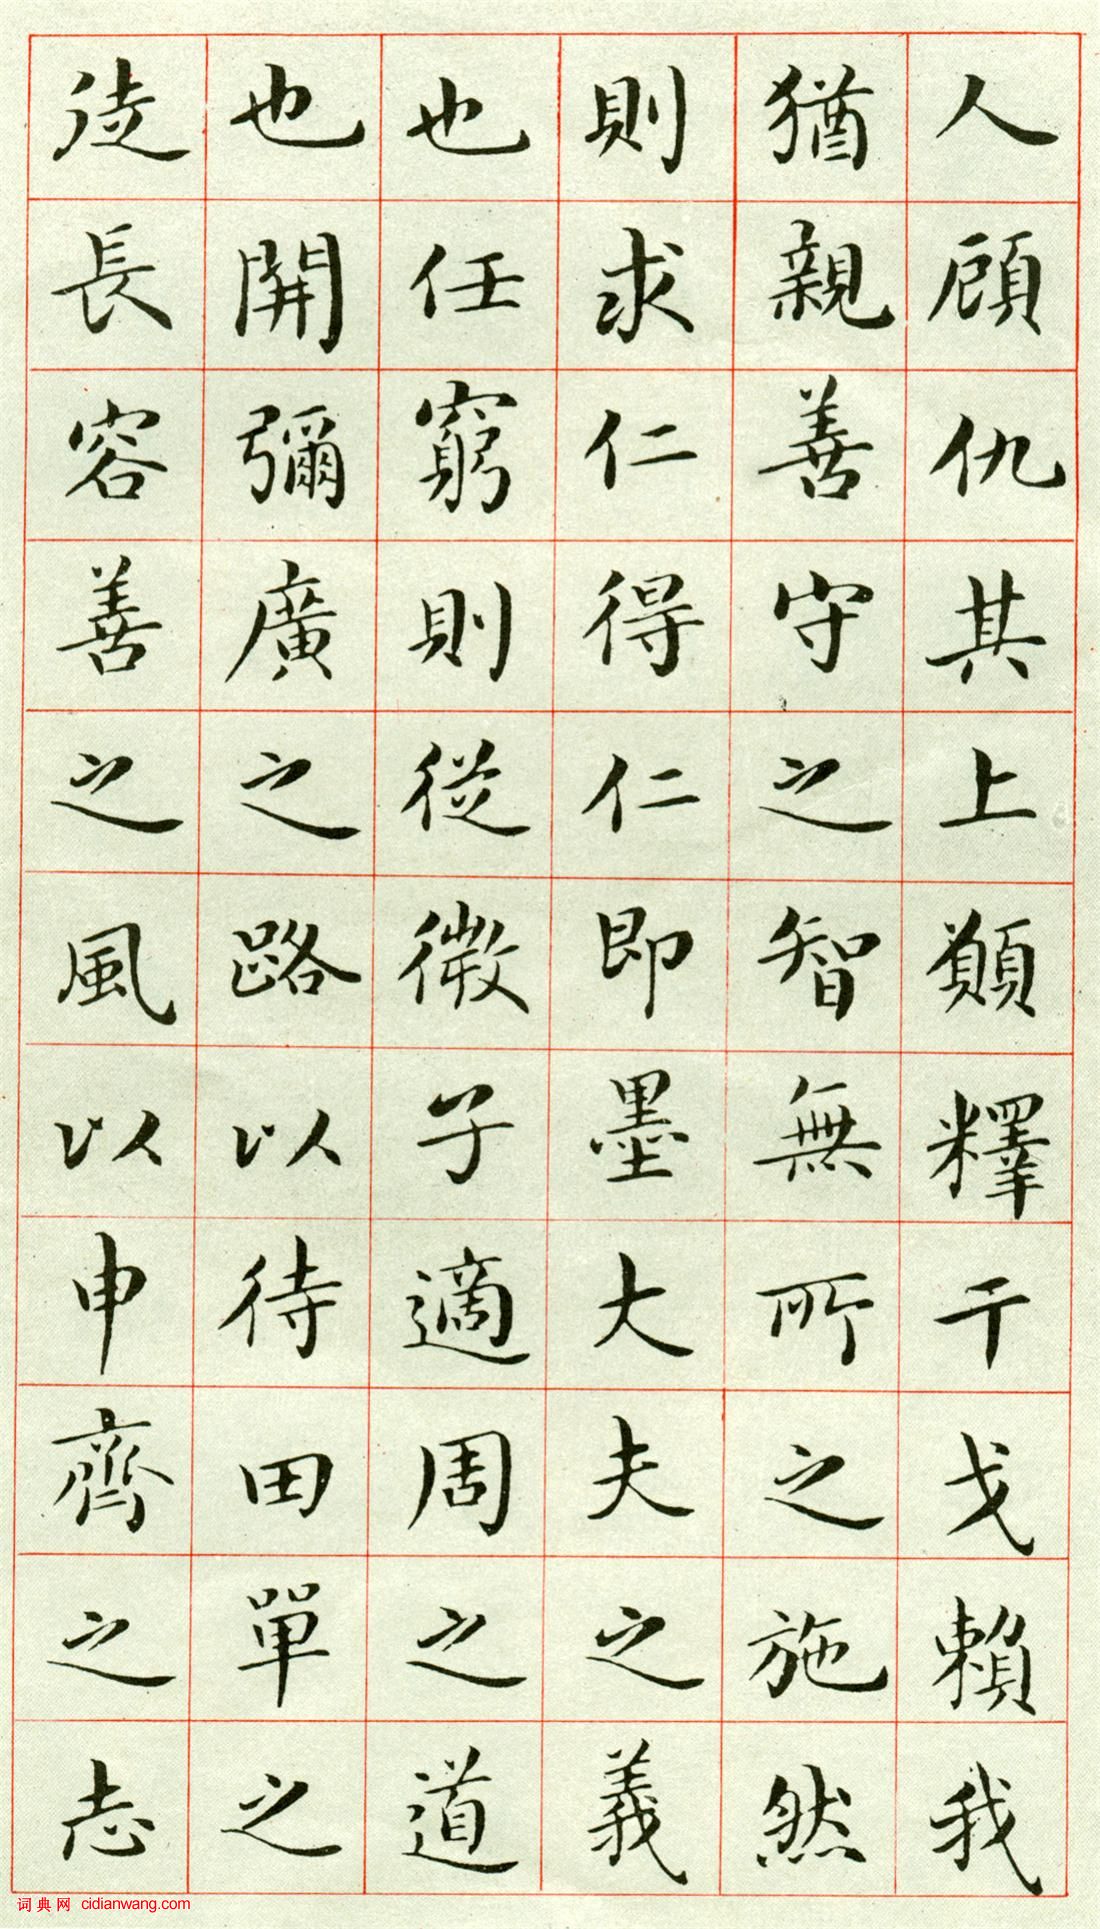 人顧仇其上願釋干戈賴我
猶親善守之智無所之施然
則求仁得仁即墨大夫之義
也任窮則從微子適周之道
也開彌廣之路以待田單之
徒長容善之風以申齊之志
词典网 cidianwang.com